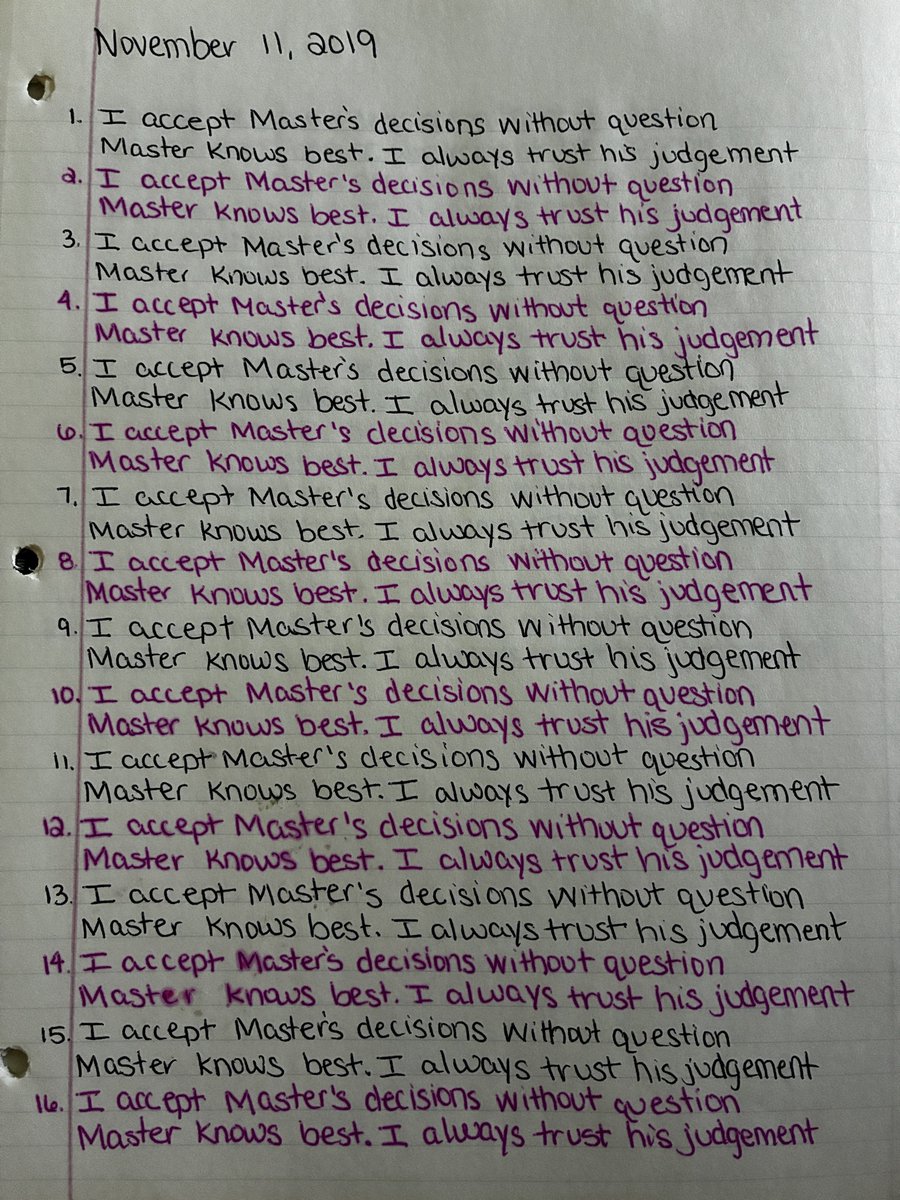 November 11, 2019
1. I accept Master's decisions without question
Master knows best. I always trust his judgement
2. I accept Master's decisions without question
Master knows best. I always trust his judgement
3. I accept Master's decisions without question
Master knows best. I always trust his judgement
4. I accept Master's decisions without question
Master knows best. I always trust his judgement
5. I accept Master's decisions without question
Master knows best. I always trust his judgement
6. I accept Master's decisions without question
Master knows best. I always trust his judgement
7. I accept Master's decisions without question
Master knows best. I always trust his judgement
8. I accept Master's decisions without question
Master knows best. I always trust his judgement
9. I accept Master's decisions without question
Master knows best. I always trust his judgement
10. I accept Master's decisions without question
Master knows best. I always trust his judgement
11. I accept Master's decisions without question
Master knows best. I always trust his judgement
12. I accept Master's decisions without question
Master knows best. I always trust his judgement
13. I accept Master's decisions without question
Master knows best. I always trust his judgement
14. I accept Master's decisions without question
Master knows best. I always trust his judgement
15. I accept Master's decisions without question
Master knows best. I always trust his judgement
16. I accept Master's decisions without question
Master knows best. I always trust his judgement